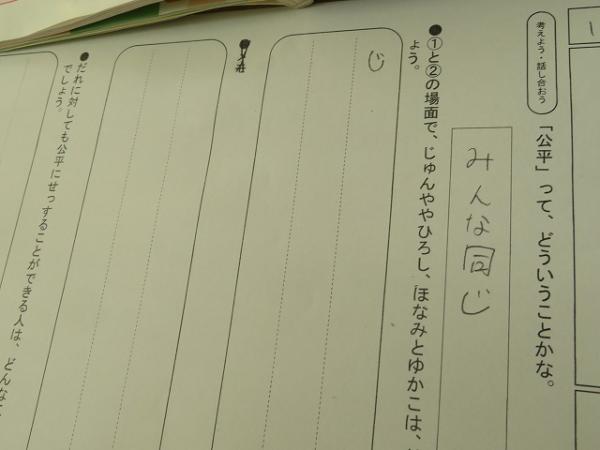 考えよう・話し合おう
「公平」って、どういうことかな。
みんな同じ
●①と②の場面で、じゅんややひろし、ほなみとゆかこは、
ょう。
じ
●だれに対しても公平にせっすることができる人は、どんな
でしょう。